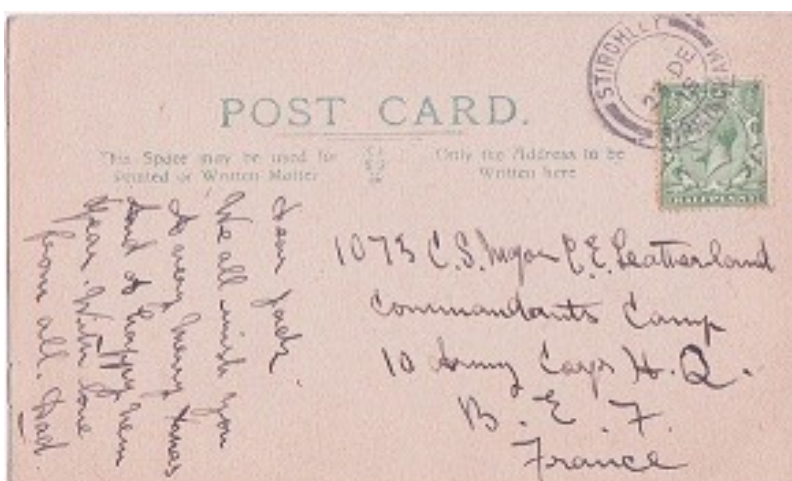 POST CARD.
This Space may be used for
Printed or Written Matter
Only the Address to be
Written here
STIRCHLEY
DE
HALFPENNY
Dear Jack.
We all wish you
a very merry Xmas
and a happy New
Year. With love
from all. Dad.
1073 C.S. Major C.E. Leatherland
Commandants Camp
10 Army Corps H.Q.
B.E.F.
France